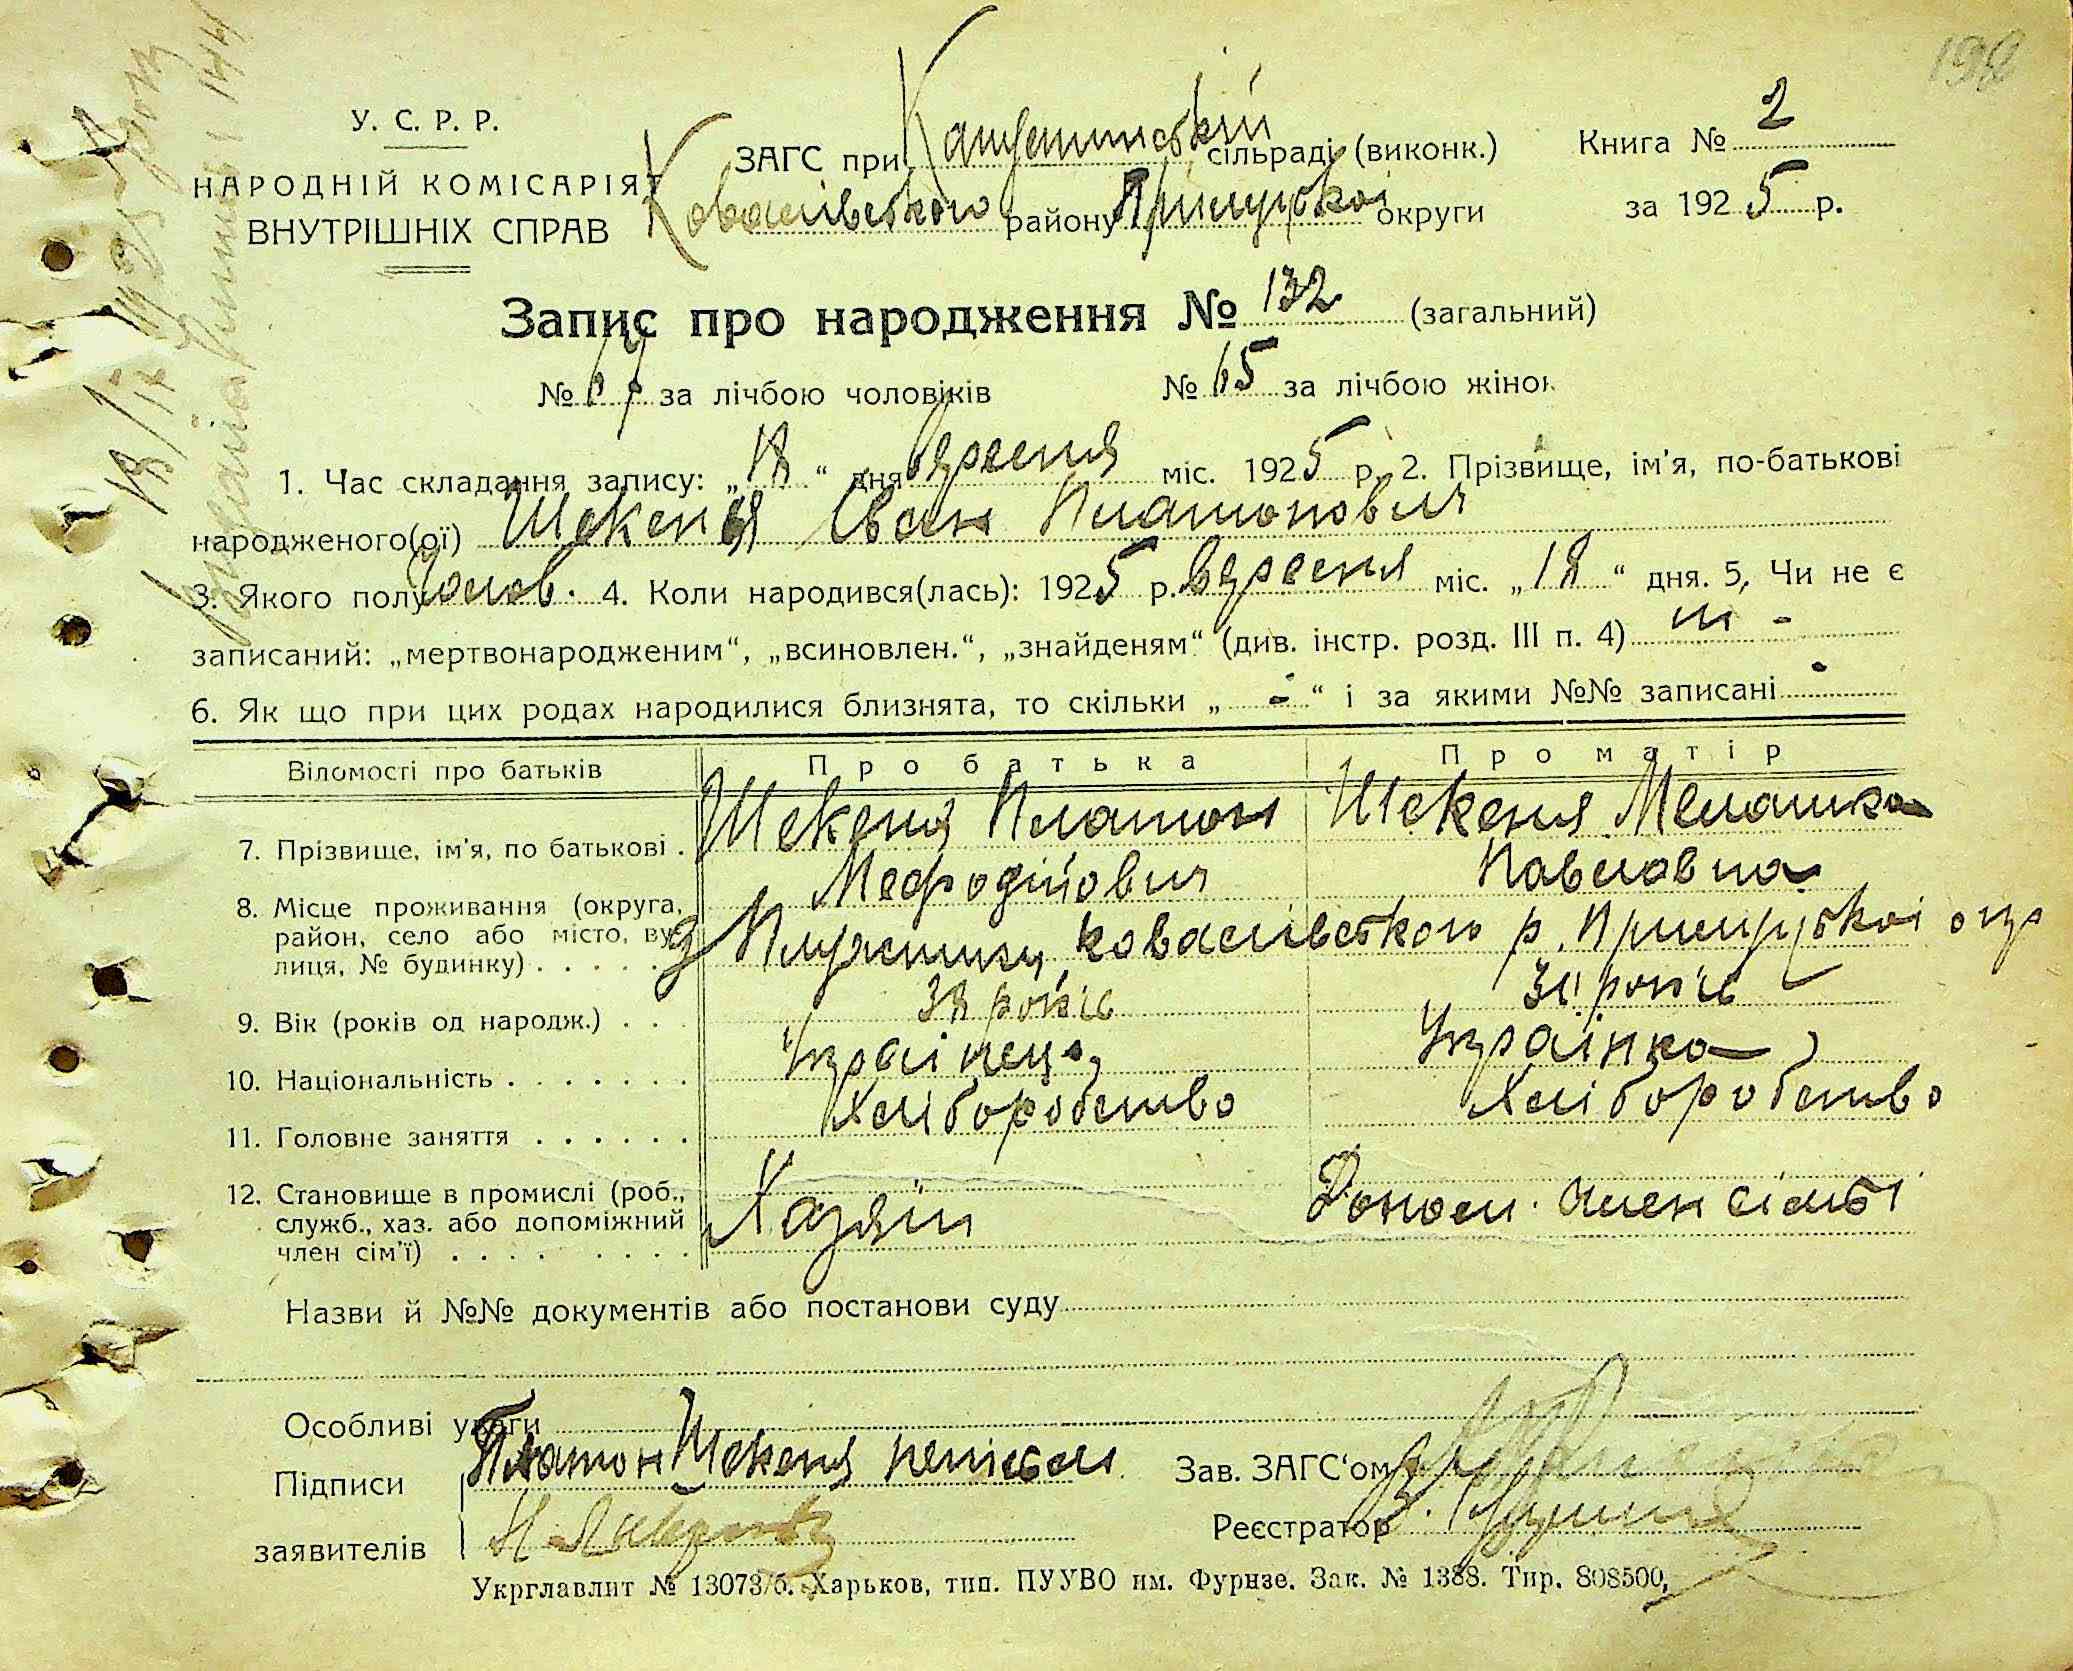 198
У. С. Р. Р.
НАРОДНІЙ КОМІСАРІЯТ
ВНУТРІШНІХ СПРАВ
ЗАГС при сільраді (виконк.)
Ковалівського району Прилуцькоі округи
Книга № 2
за 1925 р.
Запис про народження № 132 (загальний)
№ 67 за лічбою чоловіків № 65 за лічбою жінок
1. Час складання запису: „18“ дня вересня міс. 1925 р. 2. Прізвище, ім'я, по-батькові
народженого(ої) Шекеня Іван Платонович
3. Якого полу чолов. 4. Коли народився(лась): 1925 р. вересня міс. „18“ дня. 5, Чи не є
записаний: „мертвонародженим“, „всиновлен.“, „знайденям“ (див. інстр. розд. III п. 4) ні -
6. Як що при цих родах народилися близнята, то скільки „ - “ і за якими №№ записані -
Відомості про батьків Про батька Про матір
7. Прізвище, ім'я, по батькові . Шекеня Платон Мефодійович Шекеня Мелашка Павловна
8. Місце проживання (округа,
район, село або місто, ву-
лиця, № будинку) . . . . . Ковалівського р. Прилуцькоі окр
9. Вік (років од народж.) . . . 38 років 31 років
10. Національність . . . . . . . Украінець Украінка
11. Головне заняття . . . . . . Хліборобство Хліборобство
12. Становище в промислі (роб.,
служб., хаз. або допоміжний
член сім'ї) . . . . . . . . Хазяін Допом. член сімьі
Назви й №№ документів або постанови суду
Особливі уваги
Підписи Платон Шекеня Зав. ЗАГС'ом
заявителів Реєстратор
Укрглавлит № 13073/б. Харьков, тип. ПУУВО им. Фурнзе. Зак. № 1388. Тир. 808500,